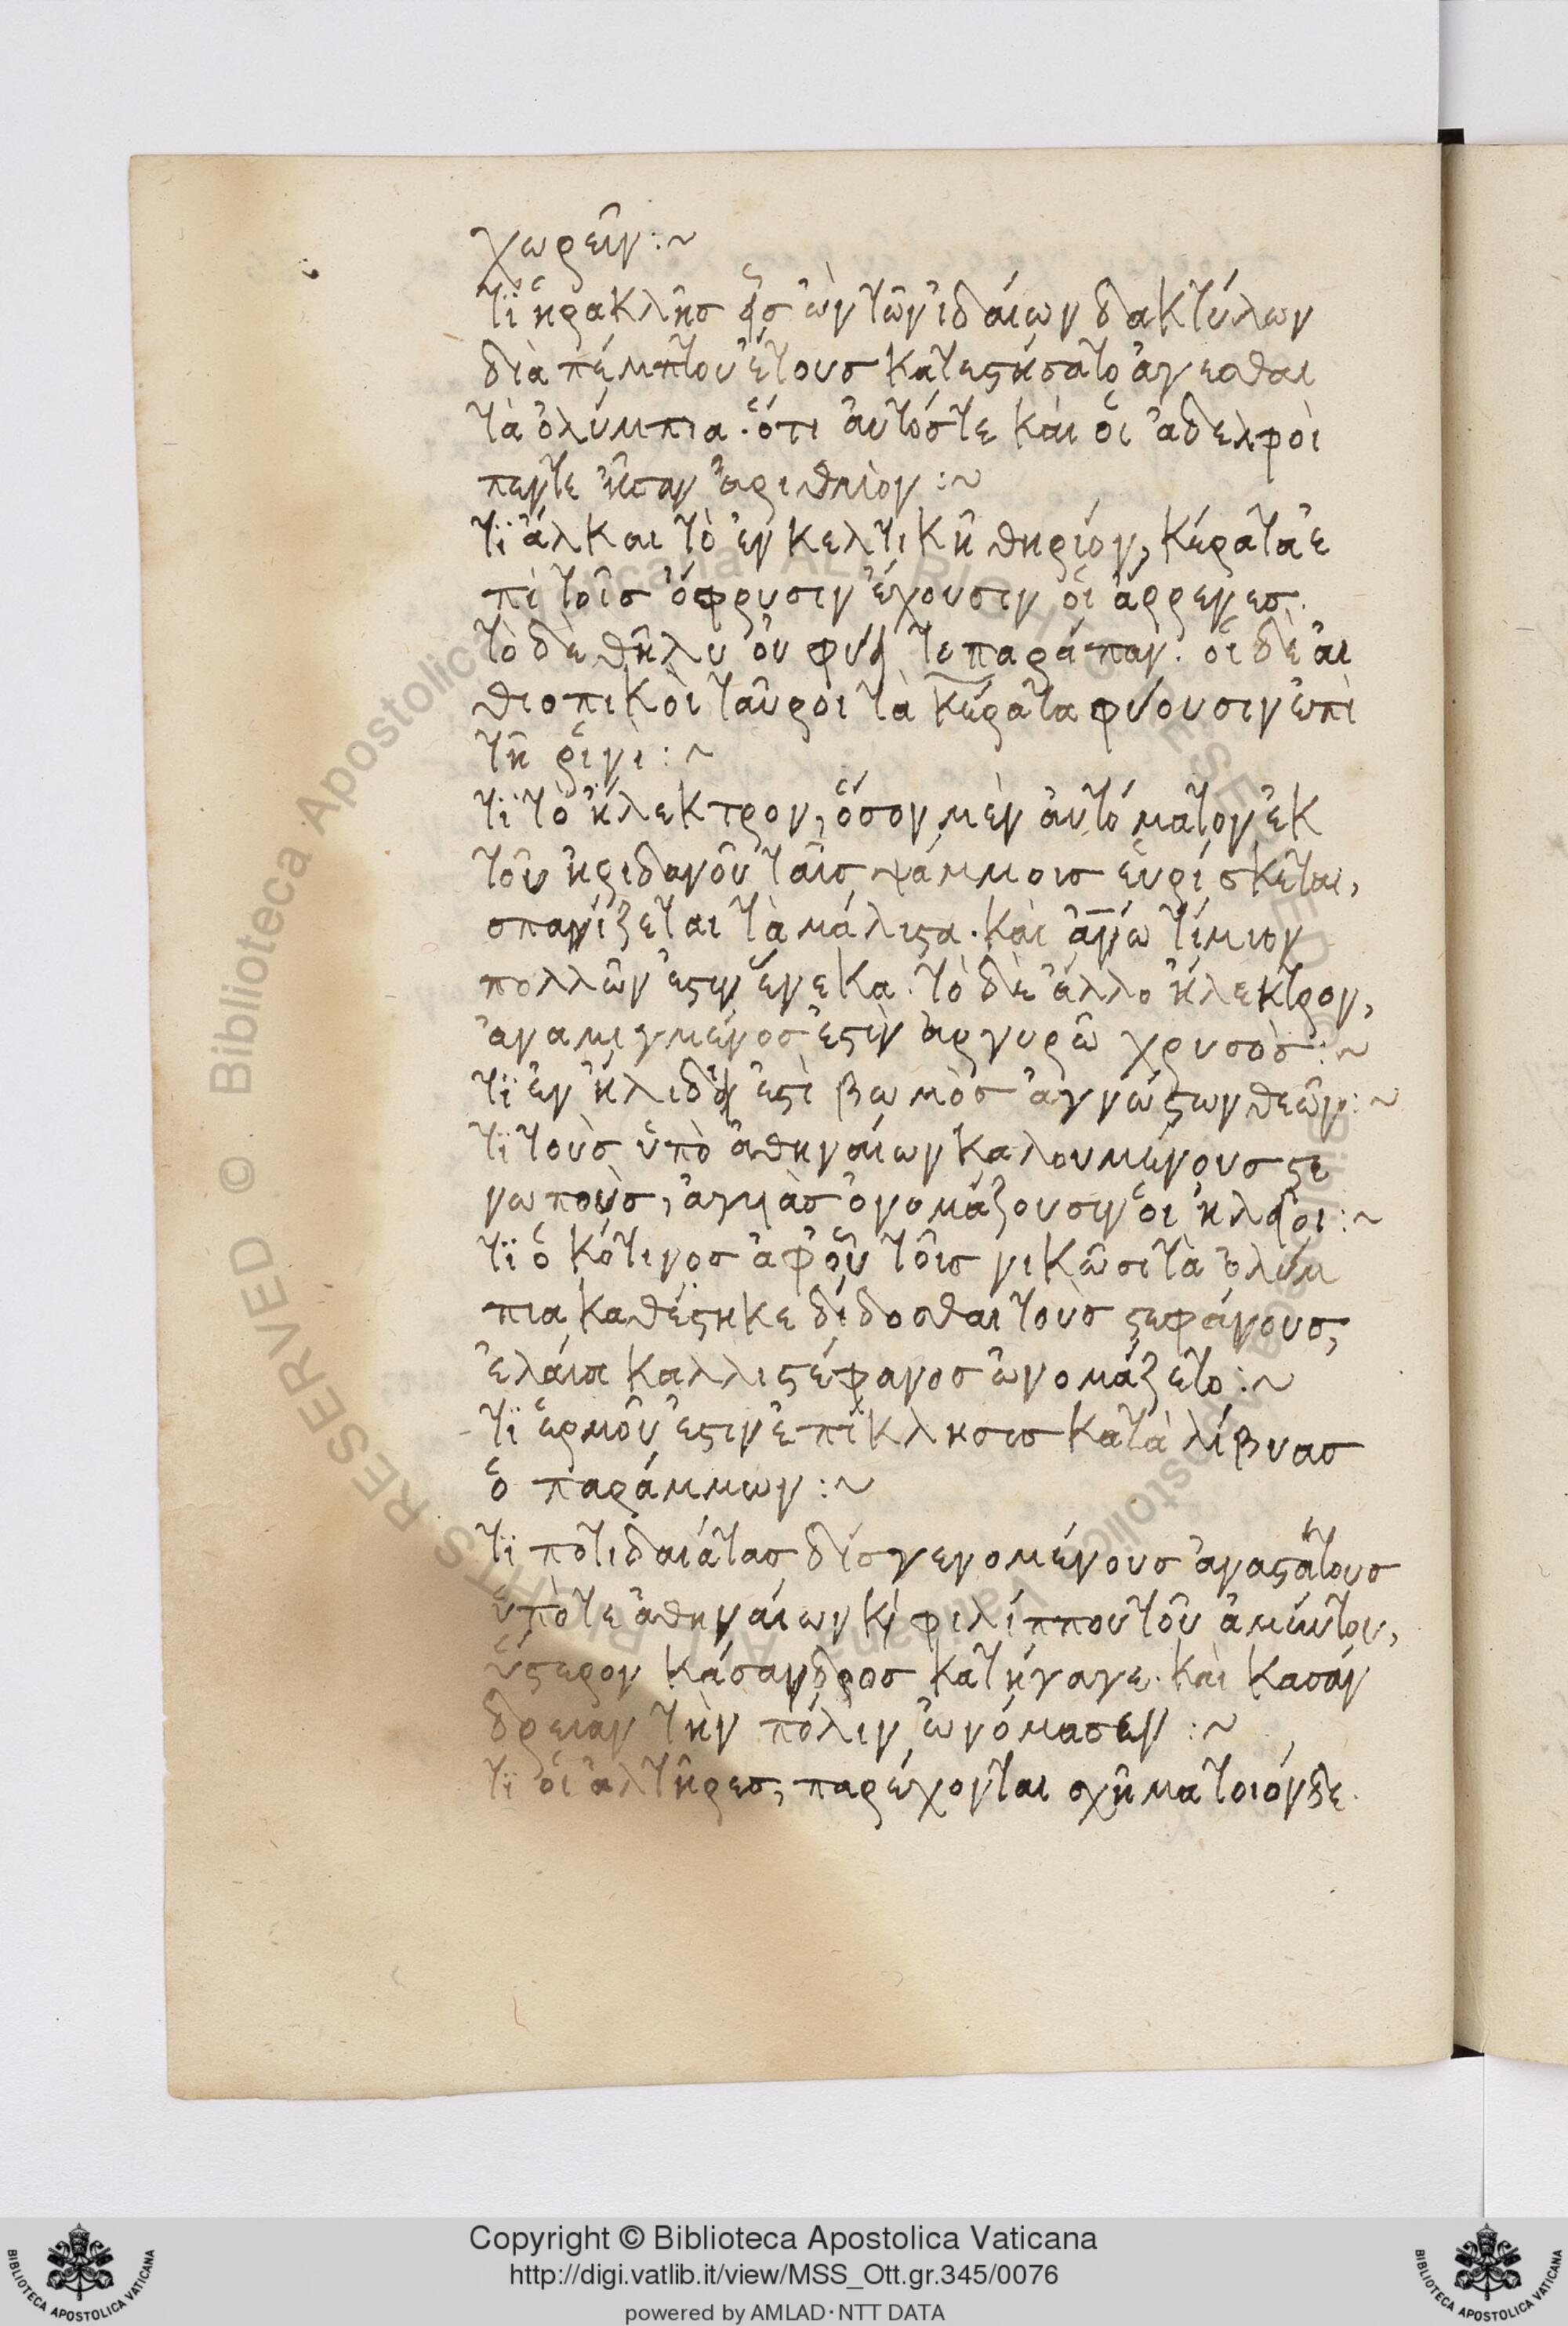 χωρεῖν :~
τί ἡρακλῆσ εἷς ὢν τῶν ἰδαίων δακτύλων
διὰ πέμπτου ἔτουσ κατεςήσατο ἄγεσθαι
τὰ ὀλύμπια· ὅτι αὐτόστε καὶ οἱ ἀδελφοὶ
πεντε ἦσαν ἀριθμὸν :~
τί ἄλκαι τὸ ἐν κελτικῆ θηρίον, κέρατα ἐ
πὶ τοῖσ ὀφρυσιν ἔχουσιν οἱ ἄρρενεσ.
τὸ δὲ θῆλυ οὐ φύει τοπαράπαν· οἱ δὲ αἰ
θιοπικοὶ ταῦροι τὰ κέρατα φύουσιν ἐπὶ
τῆ ῥινὶ :~
τί τὸ ἤλεκτρον, ὅσον μὲν αὐτόματον ἐκ
τοῦ ἠριδανοῦ ταῖσ ψάμμοισ εὑρίσκεται,
σπανίζεται τὰ μάλιςα· καὶ ἀνω τίμιον
πολλῶν ἐςιν ἕνεκα· τὸ δὲ ἄλλο ἤλεκτρον,
ἀναμιγμένοσ ἐςὶν ἀργυρῶ χρυσὸσ :~
τί ἐν ἤλιδει ἐςὶ βωμὸσ ἀγνώςων θεῶν :~
τί τοὺσ ὑπὸ ἀθηναίων καλουμένουσ ςε
νωποὺσ, ἀγυιὰσ ὀνομάζουσιν οἱ ἠλεῖοι :~
τί ὁ κότινοσ ἀφ οὗ τοῖσ νικῶσι τὰ ὀλύμ
πια καθέςηκε δίδοσθαι τοὺσ ςεφάνουσ,
ἐλαία καλλιςέφανοσ ὠνομάζετο :~
τί ἑρμοῦ ἐςιν ἐπίκλησισ κατὰ λίβυασ
ὁ παράμμων :~
τί ποτιδαιάτασ δίσ γενομένουσ ἀναςάτουσ
ὑπό τε ἀθηναίων κὶ φιλίππου τοῦ ἀμύντου,
ὕςερον κάσανδροσ κατήγαγε· καὶ κασάν
δρειαν τὴν πόλιν ὠνόμασεν :~
τί οἱ ἁλτῆρεσ, παρέχονται σχῆμα τοιόνδε.
Copyright © Biblioteca Apostolica Vaticana
http://digi.vatlib.it/view/MSS_Ott.gr.345/0076
powered by AMLAD·NTT DATA